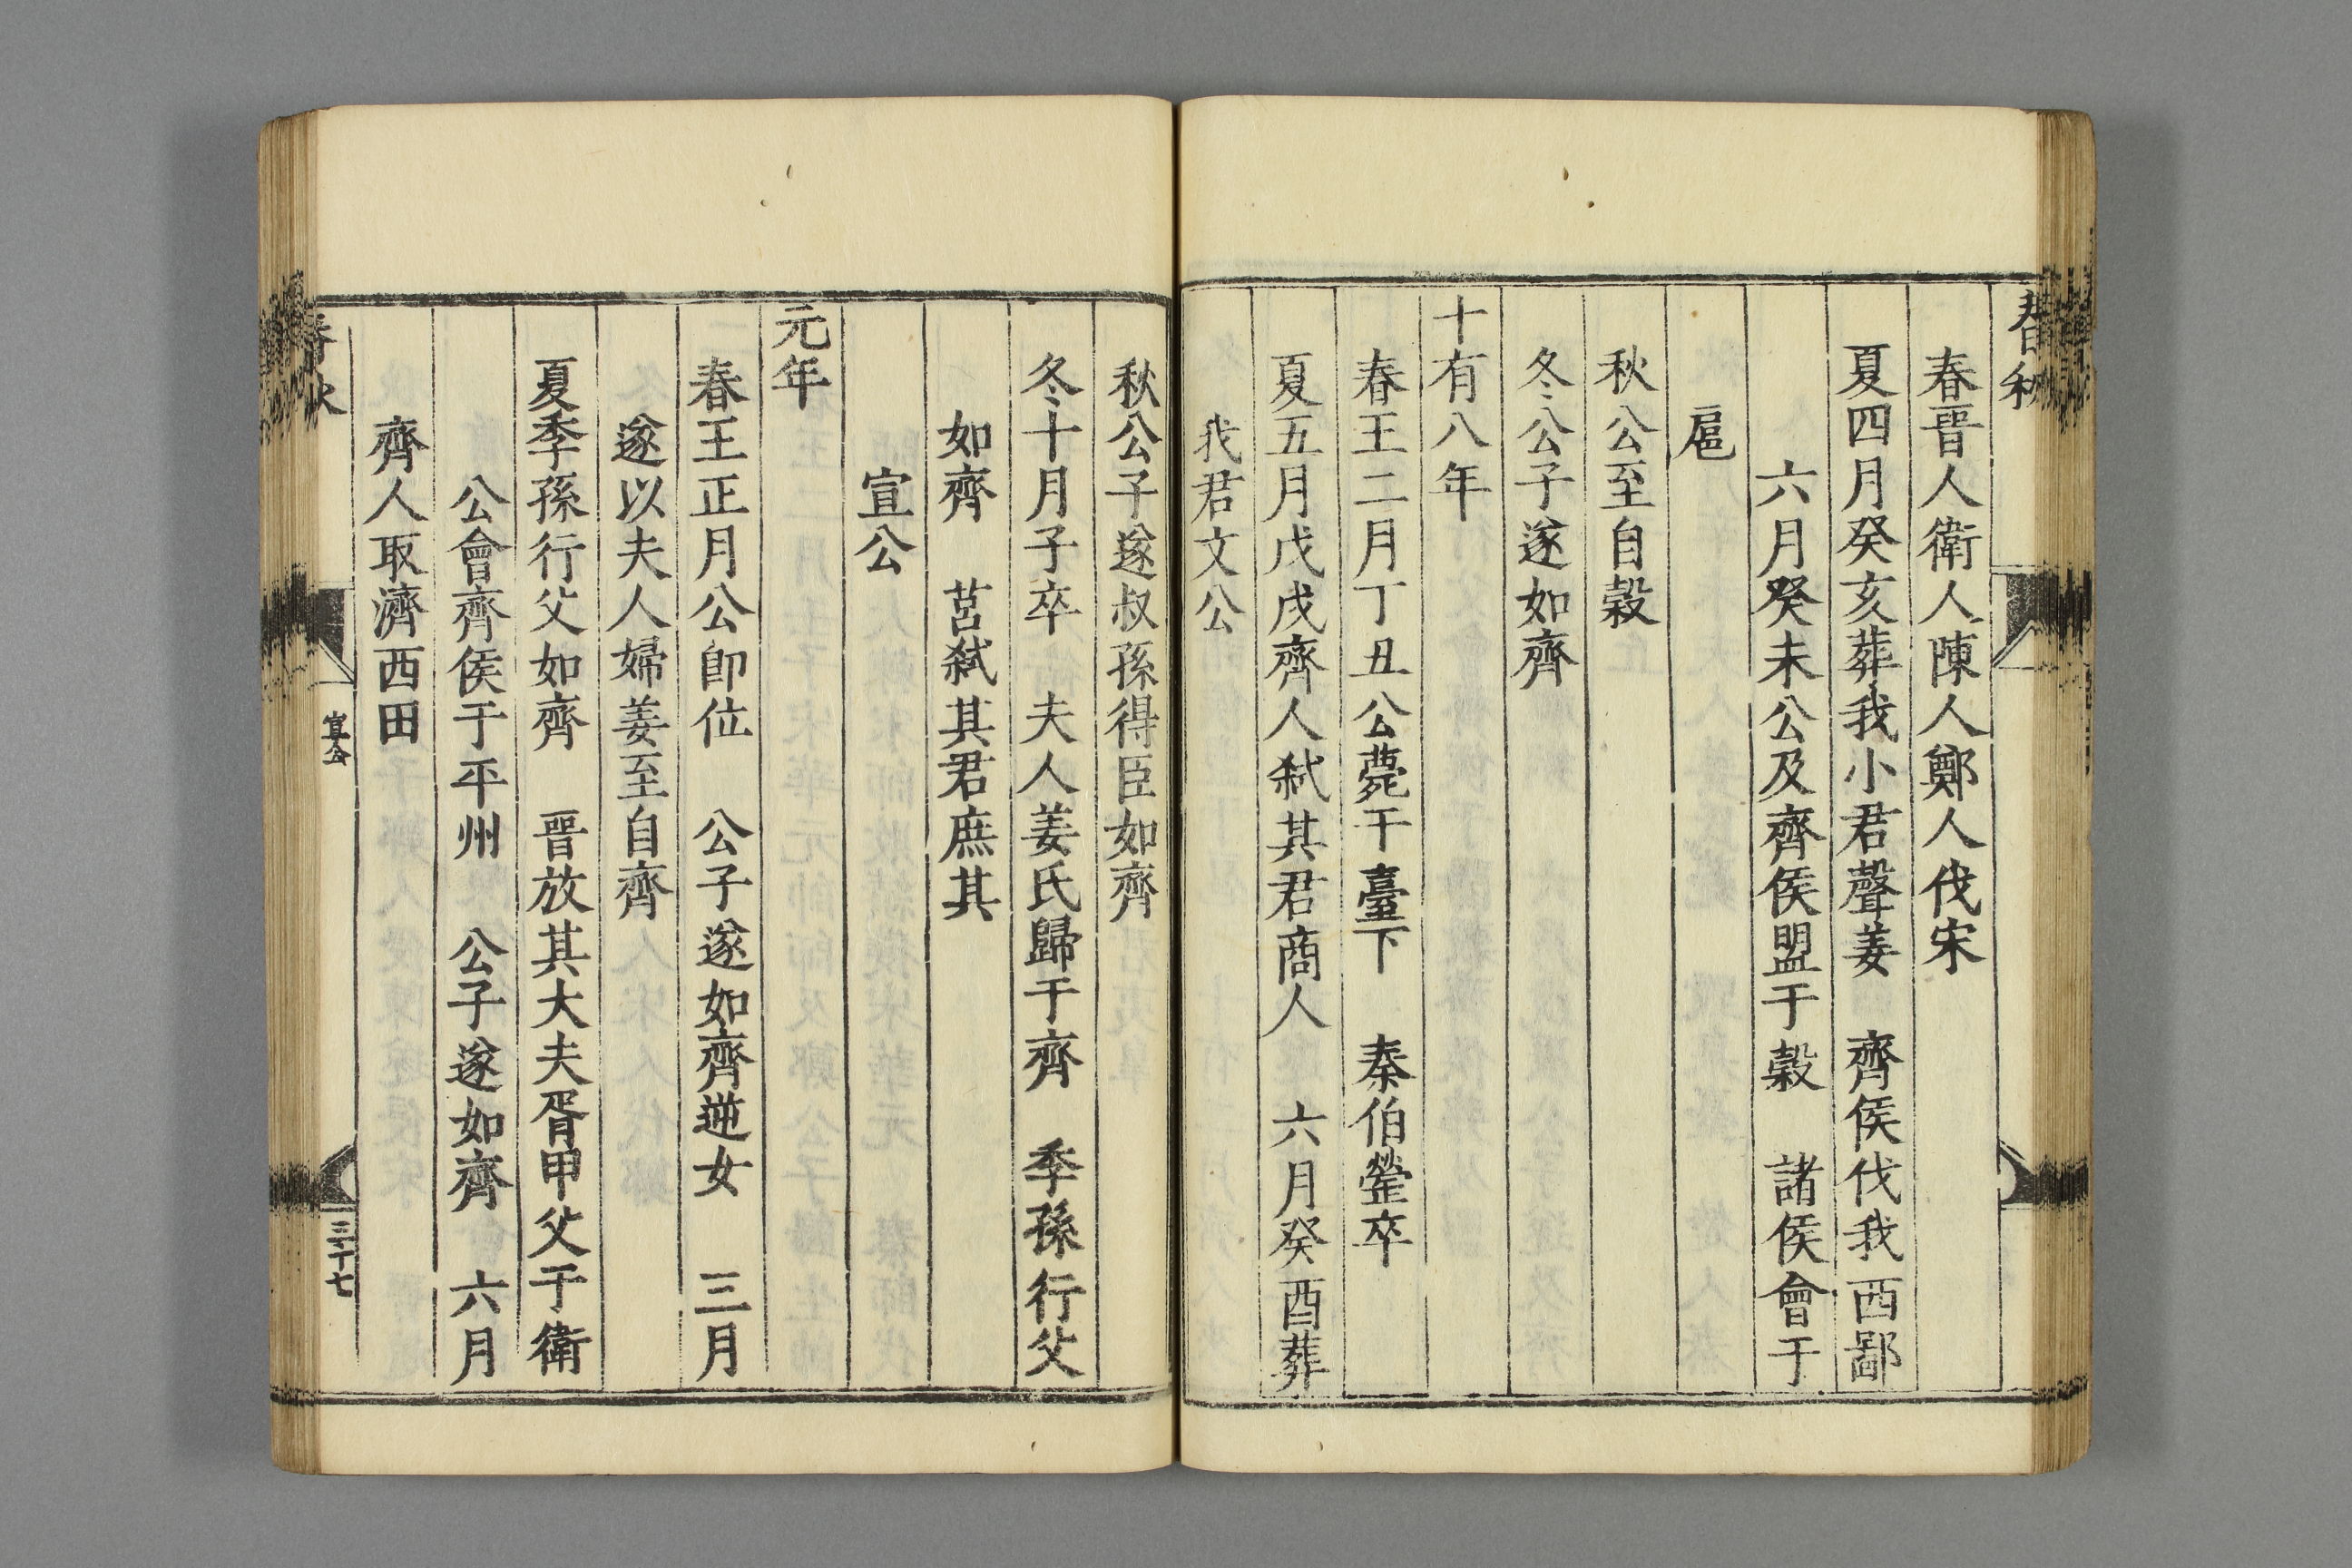 春秋
春晉人衛人陳人鄭人伐宋
夏四月癸亥葬我小君聲姜　齊侯伐我西鄙
六月癸未公及齊侯盟于穀　諸侯會于
扈
秋公至自穀
冬公子遂如齊
十有八年
春王二月丁丑公薨于臺下　秦伯罃卒
夏五月戊戌齊人弒其君商人　六月癸酉葬
我君文公
秋公子遂叔孫得臣如齊
冬十月子卒　夫人姜氏歸于齊　季孫行父
如齊　莒弒其君庶其
宣公
元年
春王正月公卽位　公子遂如齊逆女　三月
遂以夫人婦姜至自齊
夏季孫行父如齊　晉放其大夫胥甲父于衛
公會齊侯于平州　公子遂如齊　六月
齊人取濟西田
春秋
宣公
三十七